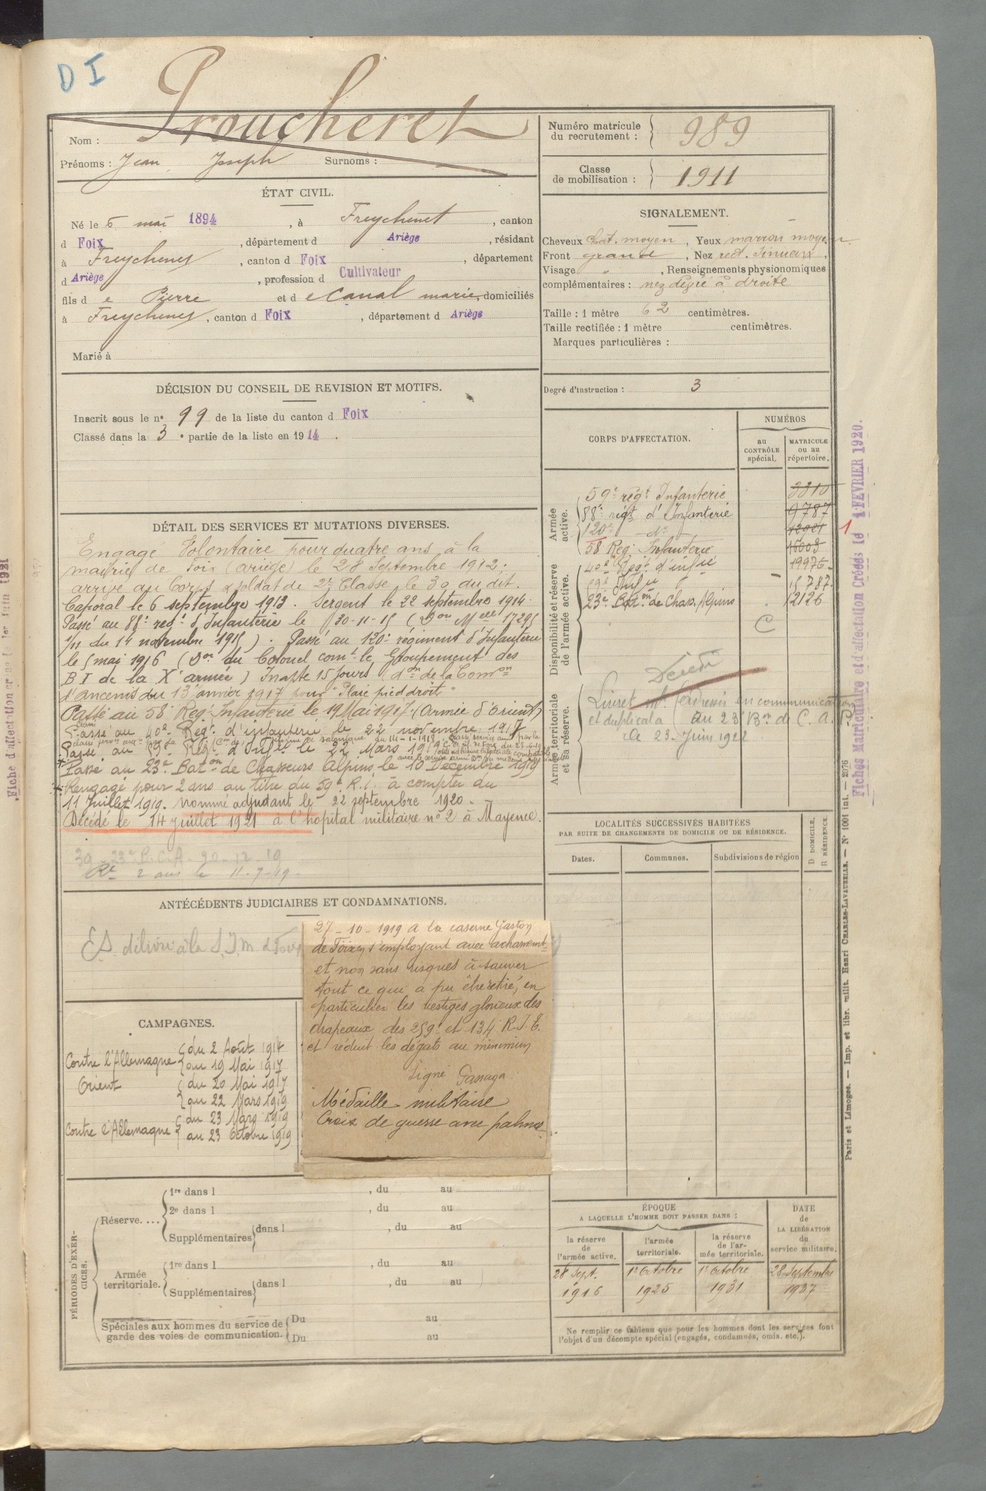 D I
Proucheret
Nom :
Prénoms : Jean Joseph Surnoms :
Numéro matricule du recrutement : 989
Classe de mobilisation : 1911
ÉTAT CIVIL.
Né le 6 mai 1894, à Freychenet, canton
d Foix, département d Ariège, résidant
à Freychenet, canton d Foix, département
d Ariège, profession d Cultivateur
fils d e Pierre et d e Canal marie, domiciliés
à Freychenet, canton d Foix, département d Ariège
Marié à
SIGNALEMENT.
Cheveux chat. moyen, Yeux marron moyen
Front grand, Nez rect. sinueux.
Visage " , Renseignements physionomiques
complémentaires : nez dévié à droite
Taille : 1 mètre 62 centimètres.
Taille rectifiée : 1 mètre centimètres.
Marques particulières :
Degré d'instruction : 3
DÉCISION DU CONSEIL DE REVISION ET MOTIFS.
Inscrit sous le n° 99 de la liste du canton d Foix
Classé dans la 3e partie de la liste en 1914.
DÉTAIL DES SERVICES ET MUTATIONS DIVERSES.
Engagé Volontaire pour quatre ans à la
mairie de Foix (ariège) le 28 Septembre 1912.
arrivé au Corps & soldat de 2e Classe le 30 du dit.
Caporal le 6 septembre 1913. Sergent le 22 septembre 1914.
Passé au 88e rég. d'Infanterie le 30-11-15
du 14 novembre 1915). Passé au 120e régiment d'Infanterie
le 5 mai 1916 (Don du Colonel comt le Groupement des
B I de la X' armée) Inapte 15 jours (don de la Comon
d'ancenis du 13 janvier 1917 pour "Plaie pied droit"
Passé au 58e Reg. Infanterie le 19 Mai 1917 (Armée d'Orient)
Passé au 40e Regt d'infanterie le 22 novembre 1917
Passé au Regt d'Inftie le 22 Mars 1919
Passé au 23e Baton de Chasseurs Alpins le 10 Décembre 1919
Rengagé pour 2 ans au titre du 59e R.I. à compter du
11 Juillet 1919. Nommé adjudant le 22 septembre 1920.
Décédé le 14 juillet 1921 à l'hopital militaire n° 2 à Mayence.
2 ans le 11-7-19.
CORPS D'AFFECTATION.
NUMÉROS
au CONTRÔLE spécial.
MATRICULE ou au répertoire.
Armée active.
59e régt Infanterie 3310
88e régt d'Infanterie 9787
120e - do -
58 Reg. Infanterie
40e Régt d'infie 19976
59e Infie 15787
23e Baton de Chass. Alpins 12126
C
Disponibilité et réserve de l'armée active.
Armée territoriale et sa réserve.
Décédé
Livret mle adressé en communication
et duplicata au 23e Bon de C. A. P.
le 23 Juin 1922
Fiches Matricule et d'affectation Créées le 1 FEVRIER 1920.
1
ANTÉCÉDENTS JUDICIAIRES ET CONDAMNATIONS.
27-10-1919 à la caserne Gaston
de Foix en s'employant avec acharnemt
et non sans risques à sauver
tout ce qui a pu être retiré, en
particulier les vestiges glorieux des
drapeaux des 259e et 134 R.I.T.
et réduit les dégats au minimum
Signé
Médaille militaire
Croix de guerre avec palmes
CAMPAGNES.
Contre l'Allemagne du 2 Août 1914
au 19 Mai 1917
Orient du 20 Mai 1917
au 22 Mars 1919
Contre l'Allemagne du 23 Mars 1919
au 23 Octobre 1919
LOCALITÉS SUCCESSIVES HABITÉES
PAR SUITE DE CHANGEMENTS DE DOMICILE OU DE RÉSIDENCE.
Dates. Communes. Subdivisions de région
D DOMICILE. R RÉSIDENCE.
PÉRIODES D'EXERCICES.
Réserve.... 1re dans l , du au
2e dans l , du au
Supplémentaires dans l , du au
Armée territoriale. 1re dans l , du au
Supplémentaires dans l , du au
Spéciales aux hommes du service de garde des voies de communication. Du au
Du au
ÉPOQUE
A LAQUELLE L'HOMME DOIT PASSER DANS :
la réserve de l'armée active.
l'armée territoriale.
la réserve de l'armée territoriale.
DATE de LA LIBÉRATION du service militaire.
28 Sept. 1916
1er Octobre 1925
1er Octobre 1931
28 Septembre 1937
Ne remplir ce tableau que pour les hommes dont les services font
l'objet d'un décompte spécial (engagés, condamnés, omis, etc.).
Paris et Limoges. — Imp. et libr. milit. Henri CHARLES-LAVAUZELLE. — N° 1001 int. — 2976